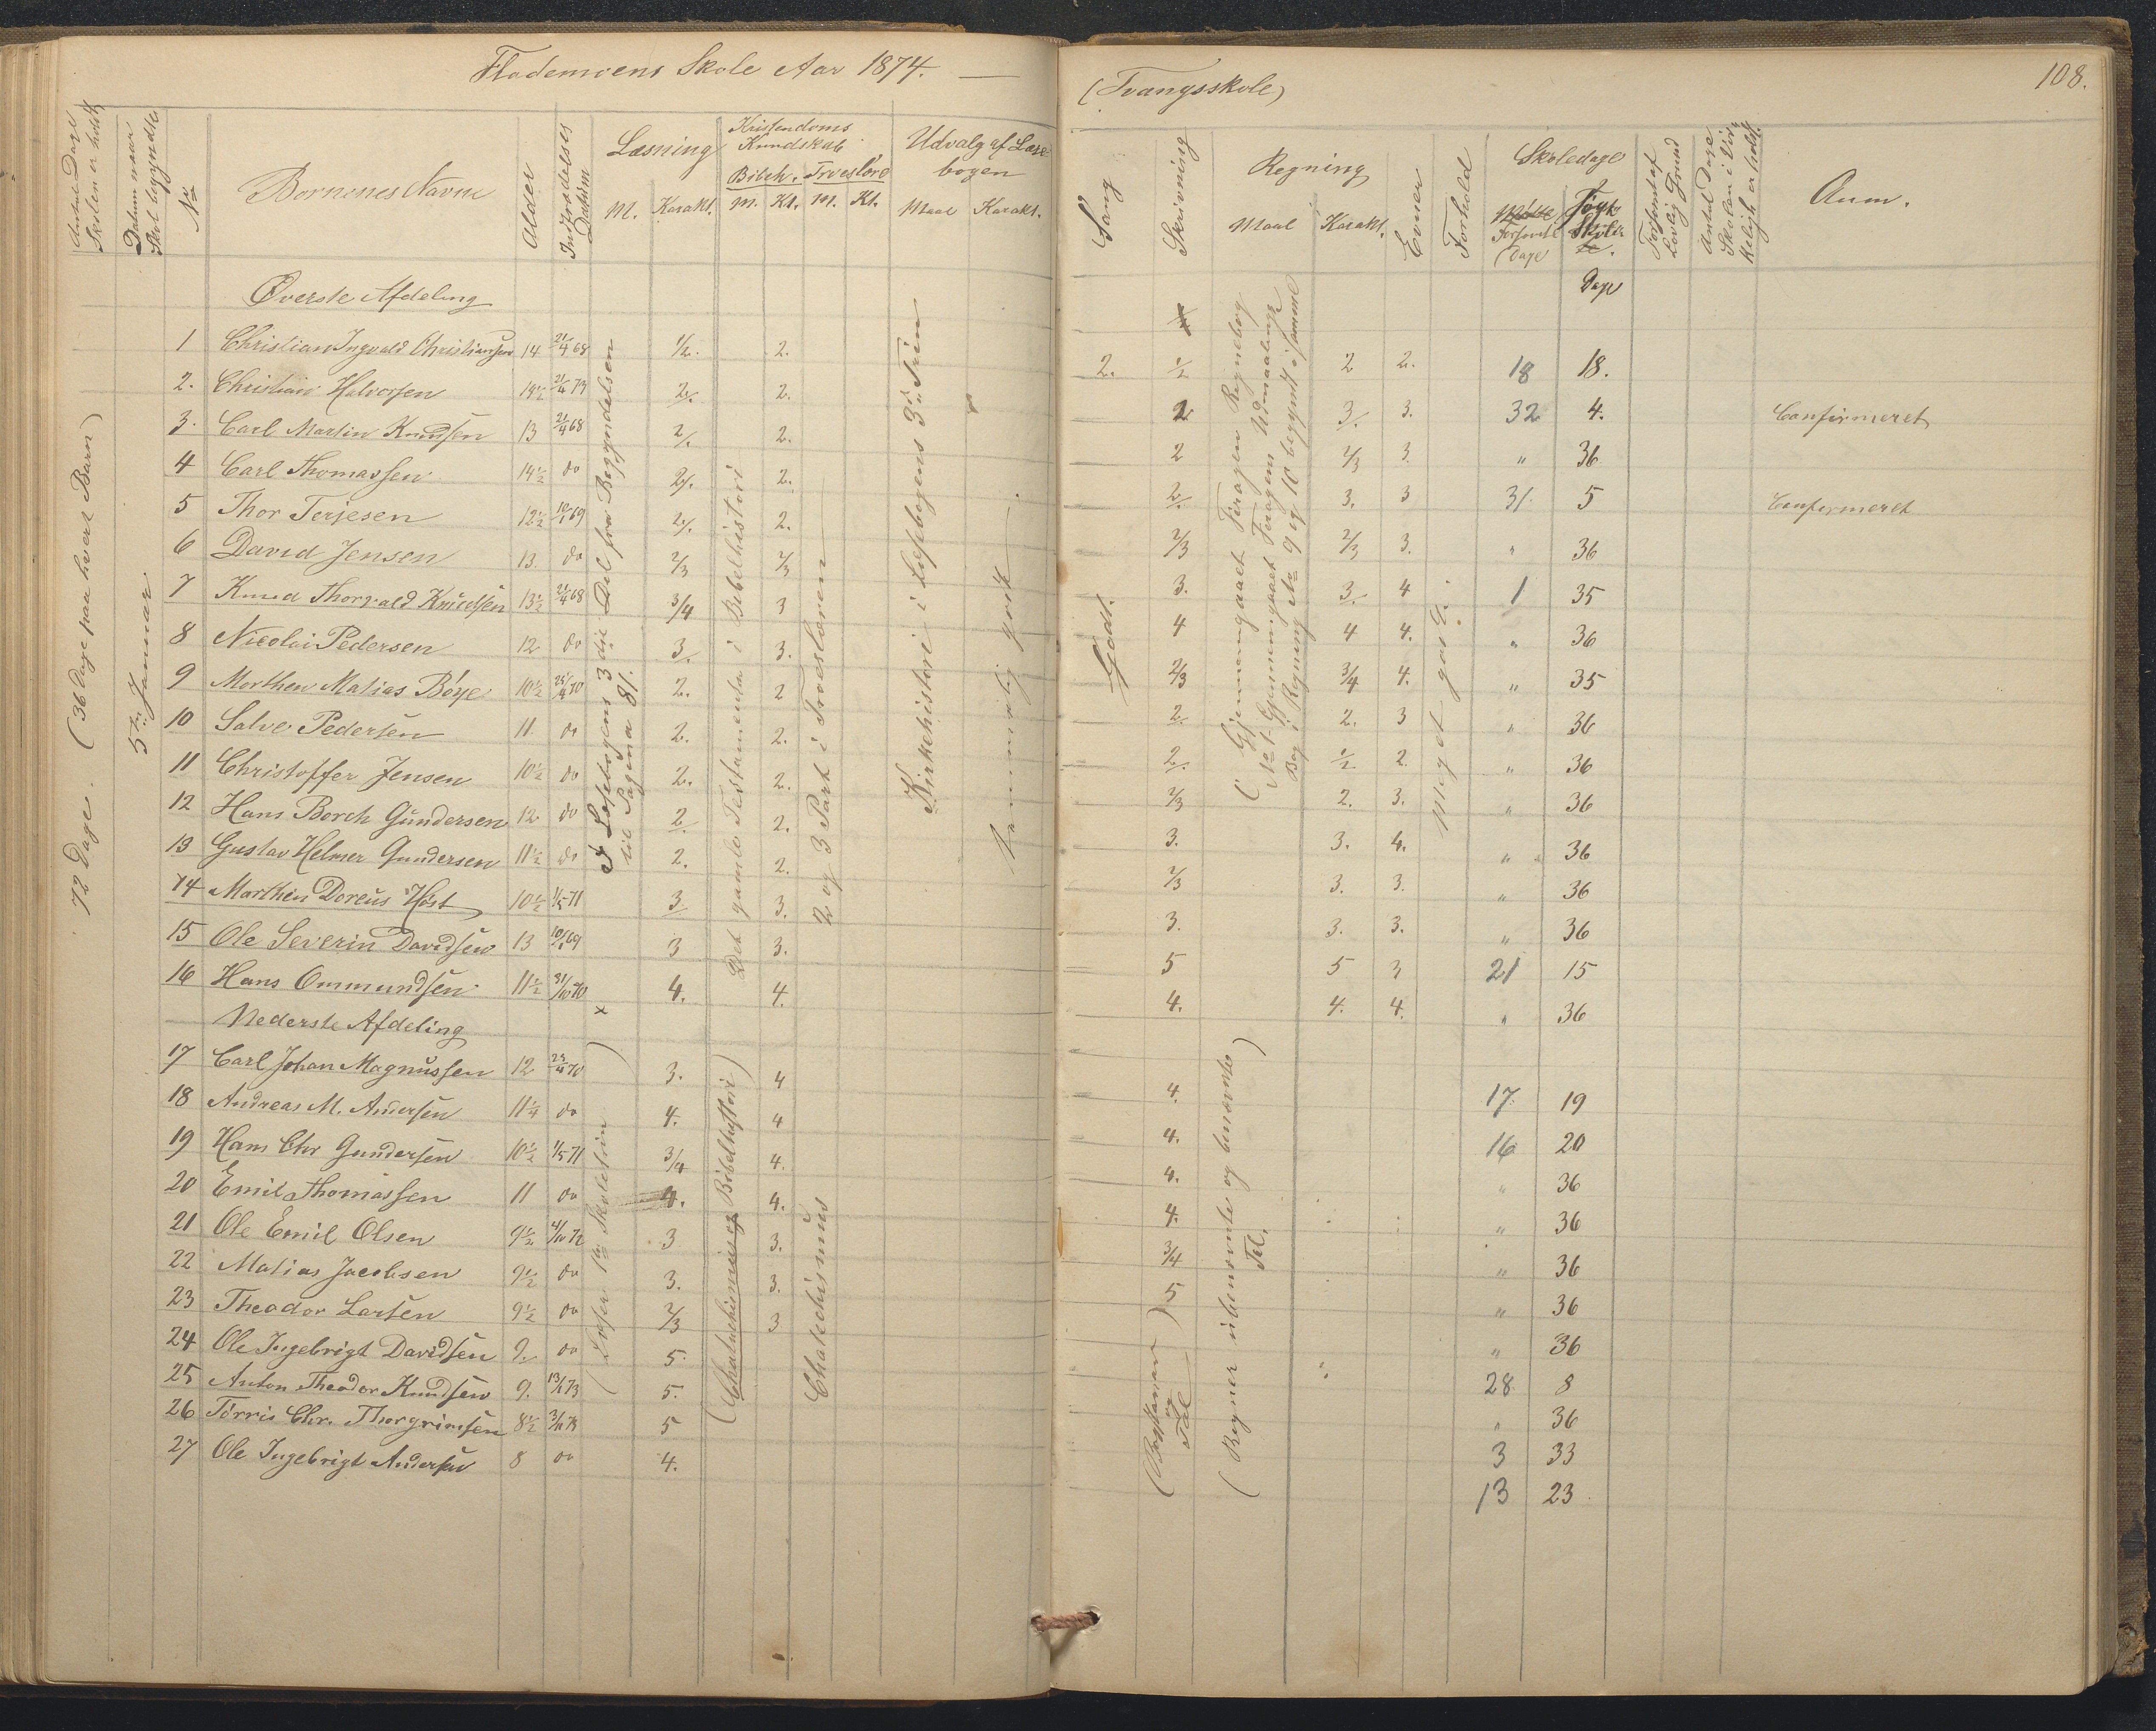 Flademoens Skole Aar 1874. —
(Tvangsskole)
108.
Antal Dage Skolen er holdt
Datum naar Skol. begyndte
No
Børnenes Navne
Alder
Indtrædelses Datum
Læsning
M. Karakt.
Kristendoms Kundskab
Bibelh. Troeslære
M. Kt. M. Kt.
Udvalg af Læse-
bogen
Maal Karakt.
Sang
Skrivning
Regning
Maal Karakt.
Evner
Forhold
Skoledage
Mødte Forsømte Dage
Søgte Skole
Dage
Forsømt af Lovlig Grund
Antal Dage Skolen i Vir-
kelighed er holdt
Anm.
72 Dage. (36 Dage paa hvert Barn)
5te Januar.
Øverste Afdeling
1 Christian Ingvald Christiansen 14 21/4 68 1/2. 2. 2. 1/2 2 2. 18 18.
2. Christian Halvorsen 14 1/2 21/4 73 2/. 2. 2 3/. 3. 32 4. Confirmeret
3. Carl Martin Knudsen 13 21/4 68 2/. 2. 2 2/3 3 " 36
4 Carl Thomassen 14 1/2 do 2/. 2. 2/. 3. 3 31 5 Confirmeret
5 Thor Terjesen 12 1/2 10/1 69 2/. 2. 2/3 2/3 3. " 36
6 David Jensen 13. do 2/3 2/3 3. 3/. 4 1 35
7 Knud Thorvald Knudsen 13 1/2 21/4 68 3/4 3 4 4 4. " 36
8 Nicolai Pedersen 12 do 3/. 3. 2/3 3/4 4. " 35
9 Morthen Matias Bøye 10 1/2 25/4 70 2. 2 2/. 2. 3 " 36
10 Salve Pedersen 11. do 2. 2. 2/. 1/2 2. " 36
11 Christoffer Jensen 10 1/2 do 2. 2. 2/3 2. 3. " 36
12 Hans Borch Gundersen 12 do 2/. 2. 3. 3. 4. " 36
13 Gustav Helmer Gundersen 11 1/2 do 2. 2. 2/3 3. 3. " 36
14 Morthen Doreus Høst 10 1/2 1/5 71 3/. 3. 3. 3. 3. " 36
15 Ole Severin Davidsen 13 10/1 69 3 3. 5 5 3 21 15
16 Hans Ommundsen 11 1/2 31/10 70 4. 4. 4. 4. 4. " 36
Nederste Afdeling
17 Carl Johan Magnussen 12 25/4 70 3. 4 4. 17. 19
18 Andreas M. Andersen 11 1/4 do 4. 4 4. 16 20
19 Hans Chr Gundersen 10 1/2 1/5 71 3/4 4. 4. " 36
20 Emil Thomassen 11 do 4. 4. 4. " 36
21 Ole Emil Olsen 9 1/2 4/10 72 3 3. 3/4 " 36
22 Matias Jacobsen 9 1/2 do 3. 3. 5 " 36
23 Theodor Larsen 9 1/2 do 2/3 3 " 36
24 Ole Ingebrigt Davidsen 9. do 5. 28. 8
25 Anton Theodor Knudsen 9. 13/1 73 5. " 36
26 Tørris Chr. Thorgrimsen 8 1/2 5 3 33
27 Ole Ingebrigt Andersen 8 do 4. 13 23
I Læsebogens 3die Del fra Begyndelsen
til Pagina 81.
Det gamle Testamente i Bibelhistori
2 og 3 Part i Troeslæren
Kirkehistori i Læsebogens 3die Trin
temmelig godt
Godt.
(Gjennemgaaet Firagen Regnebog
No 1 Gjennemgaaet Firagens Udmaalings
Bog i Regning No 9 og 10 begyndt i samme)
Meget godt.
(Læser 1ste Skoletrin)
(Chatachismus og Bibelhistori)
Chatechismus
(Bogstaver
og
Tal)
(Regner ubenævnte og benævnte)
Tal.